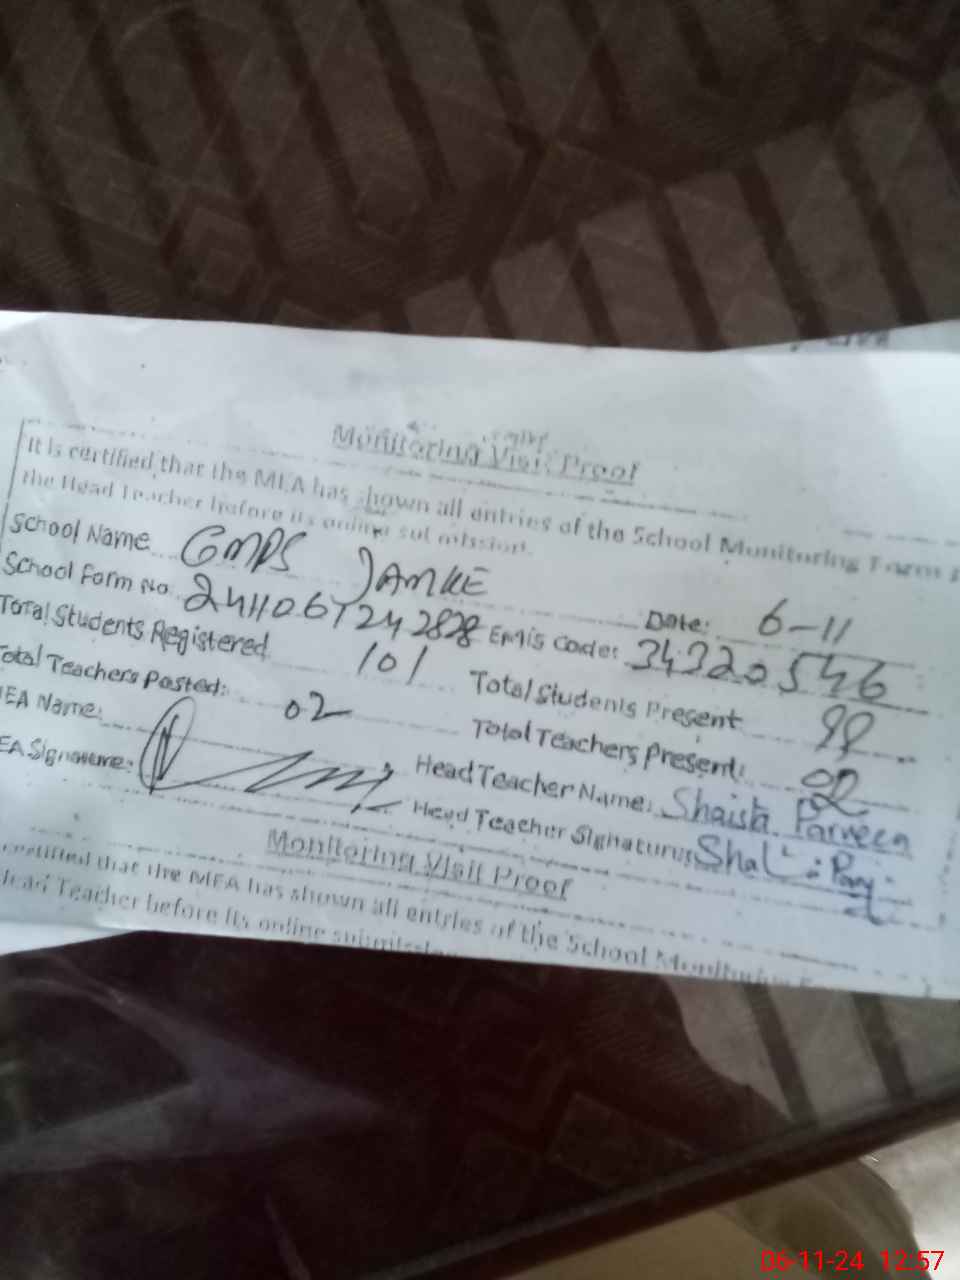 Monitoring Visit Proof
It is certified that the MEA has shown all entries of the School Monitoring Form
the Head Teacher before its online submission.
School Name GMPS JAMKE Date: 6-11
School Form No. 241106124 2828 Emis Code: 34320546
Total Students Registered 101 Total Students Present 99
Total Teachers Posted: 02 Total Teachers Present: 02
MEA Name: Head Teacher Name: Shaista Parveen
EA Signature: Head Teacher Signature:
Monitoring Visit Proof
certified that the MEA has shown all entries of the School Monitoring
Head Teacher before its online submission
06-11-24 12:57